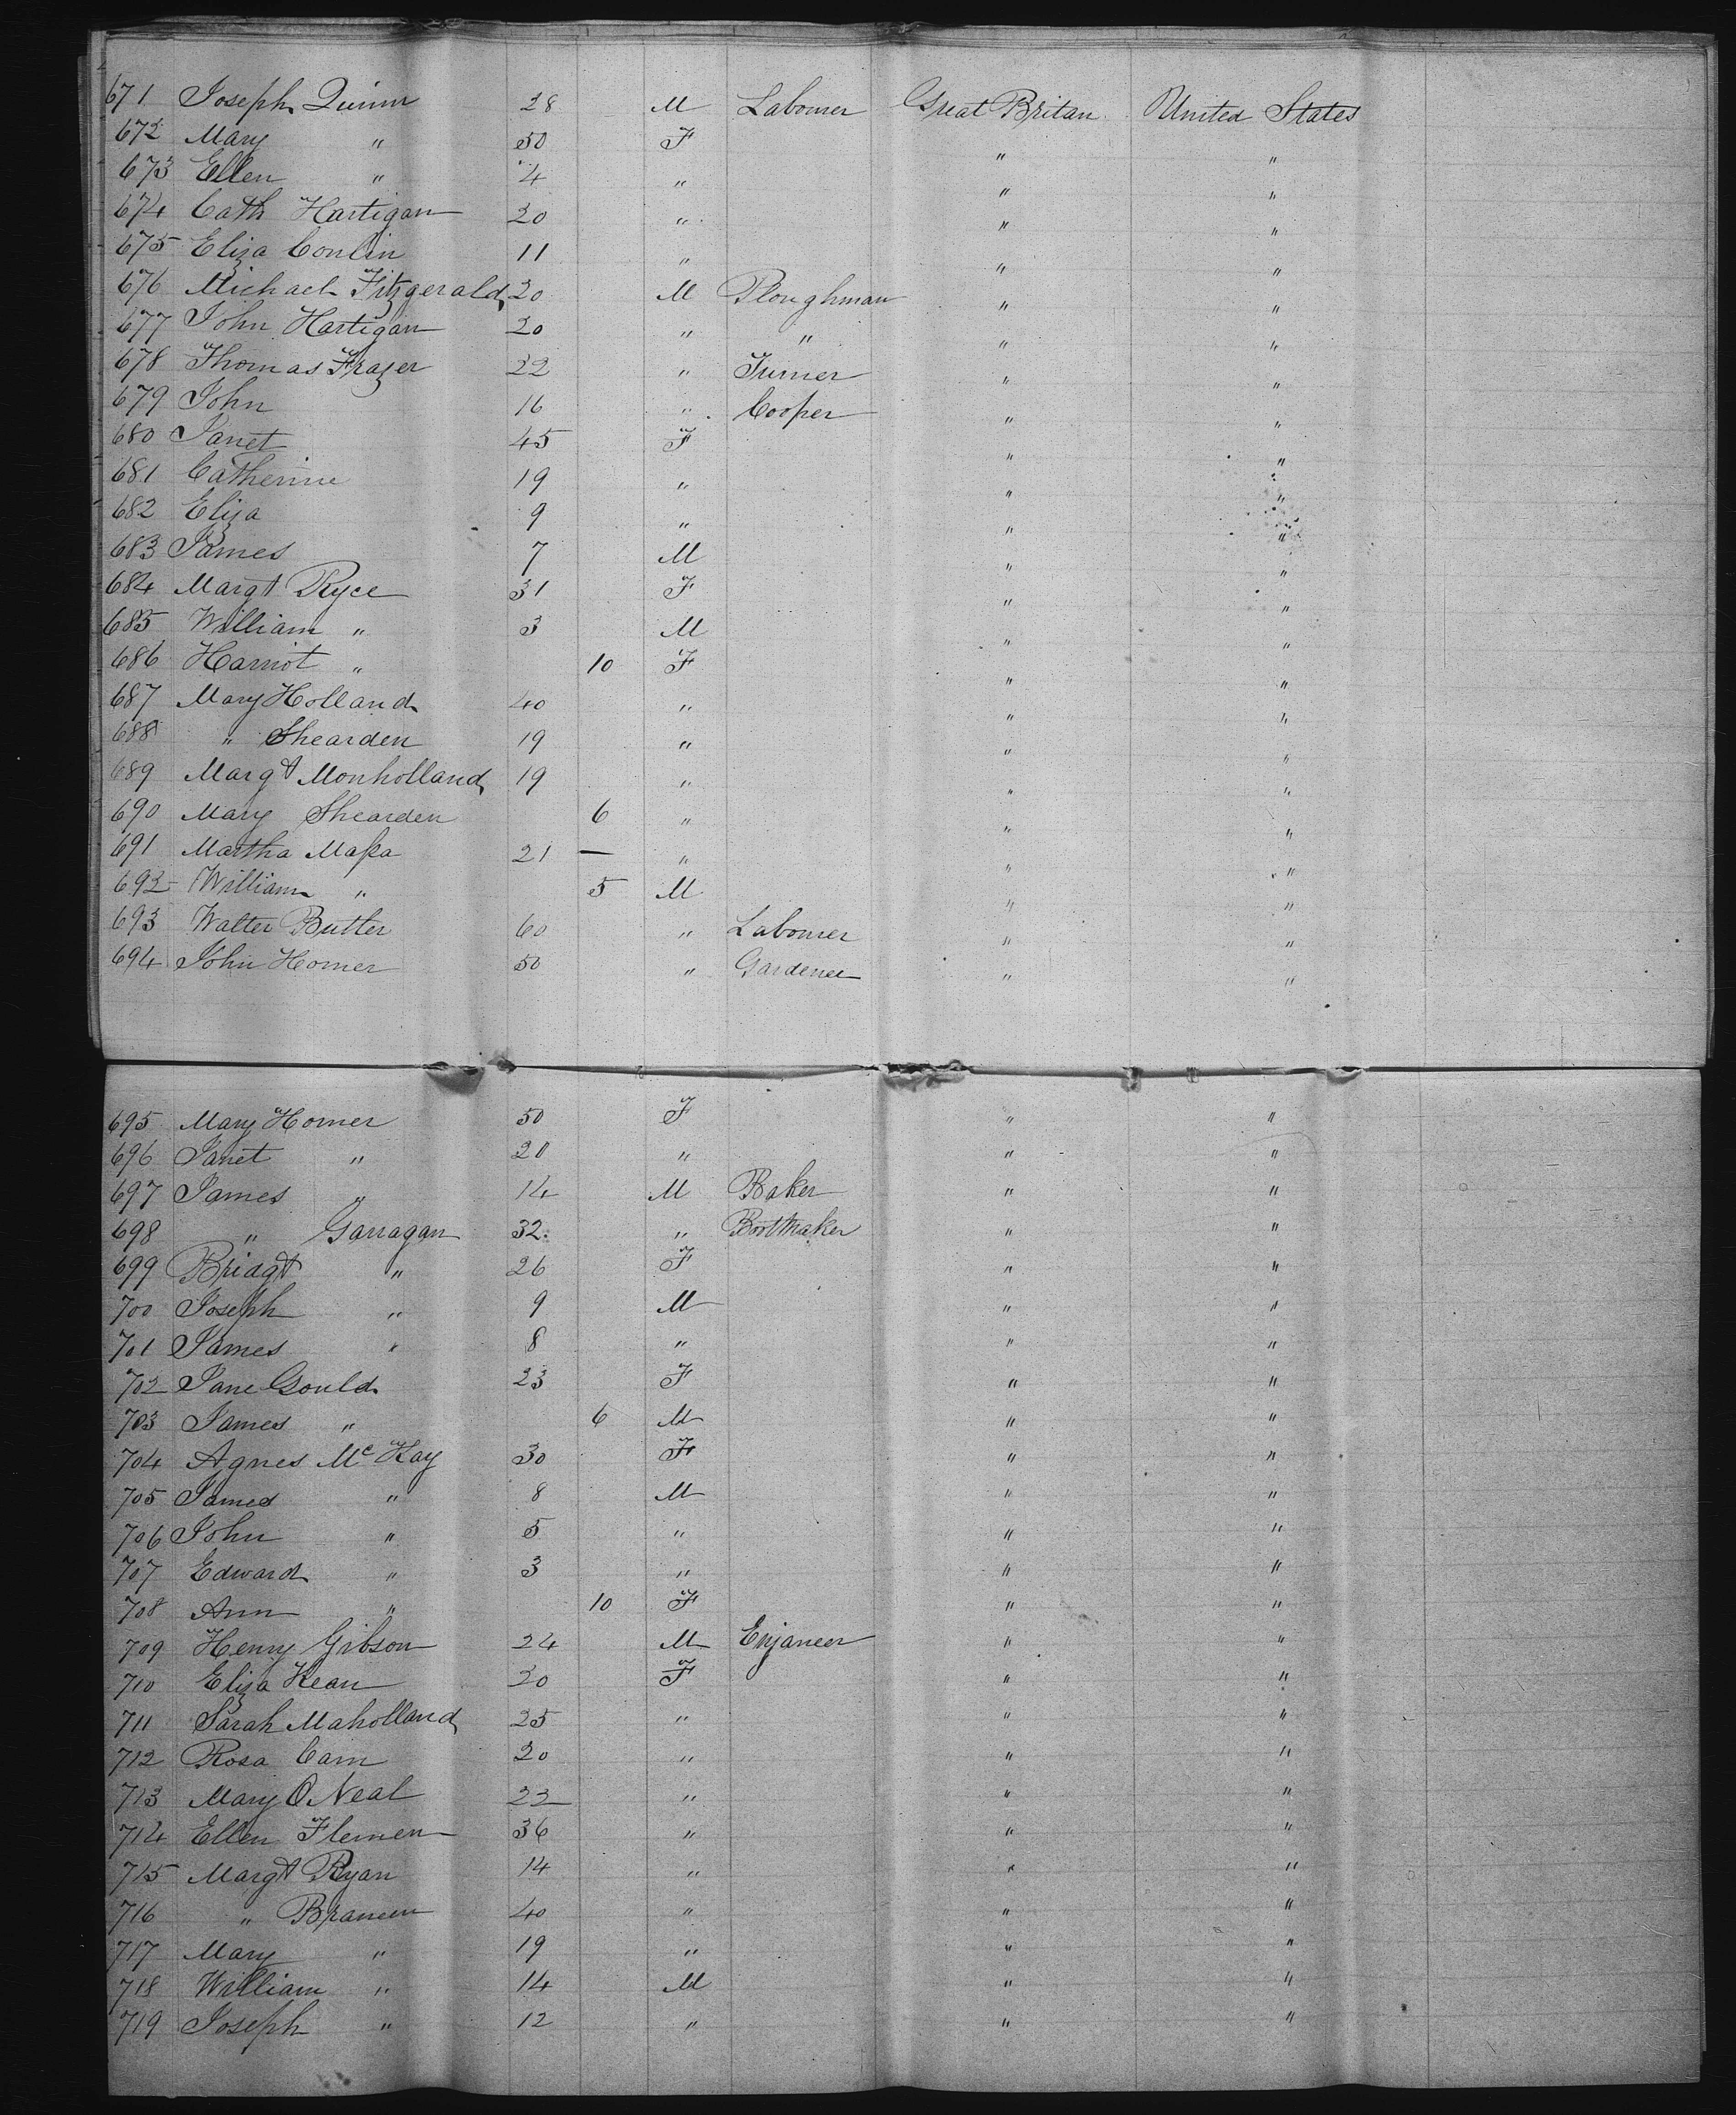 671 Joseph Quinn 28 M Labourer Great Britan United States
672 Mary " 50 F " "
673 Ellen " 4 " " "
674 Cath Hartigan 20 " " "
675 Eliza Conlin 11 " " "
676 Michael Fitzgerald 20 M Ploughman " "
677 John Hartigan 20 " " " "
678 Thomas Frazer 22 " Turner " "
679 John 16 " Cooper " "
680 Janet 45 F " "
681 Catherine 19 " " "
682 Eliza 9 " " "
683 James 7 M " "
684 Margt Ryce 31 F " "
685 William " 3 M " "
686 Harriot " 10 F " "
687 Mary Holland 40 " " "
688 " Shearden 19 " " "
689 Margt Monholland 19 " " "
690 Mary Shearden 6 " " "
691 Martha Maſsa 21 — " " "
692 William " 5 M " "
693 Walter Butler 60 " Labourer " "
694 John Homer 50 " Gardener " "
695 Mary Homer 50 F " "
696 Janet " 20 " " "
697 James " 14 M Baker " "
698 " Garragan 32 " Bootmaker " "
699 Bridgt " 26 F " "
700 Joseph " 9 M " "
701 James " 8 " " "
702 Jane Gould 23 F " "
703 James " 6 M " "
704 Agnes McKay 30 F " "
705 James " 8 M " "
706 John " 5 " " "
707 Edward " 3 " " "
708 Ann " 10 F " "
709 Henry Gibson 24 M Enjaneer " "
710 Eliza Kean 20 F " "
711 Sarah Maholland 25 " " "
712 Rosa Cam 20 " " "
713 Mary O Neal 22 " " "
714 Ellen Flemen 36 " " "
715 Margt Ryan 14 " " "
716 " Braneen 40 " " "
717 Mary " 19 " " "
718 William " 14 M " "
719 Joseph " 12 " " "